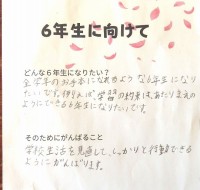 6年生に向けて
どんな6年生になりたい？
全学年のお手本になれるような6年生になり
たいです。例えば、学習の約束は、あたりまえの
ようにできる6年生になりたいです。
そのためにがんばること
学校生活を見通して、しっかりと行動できる
ようにがんばります。